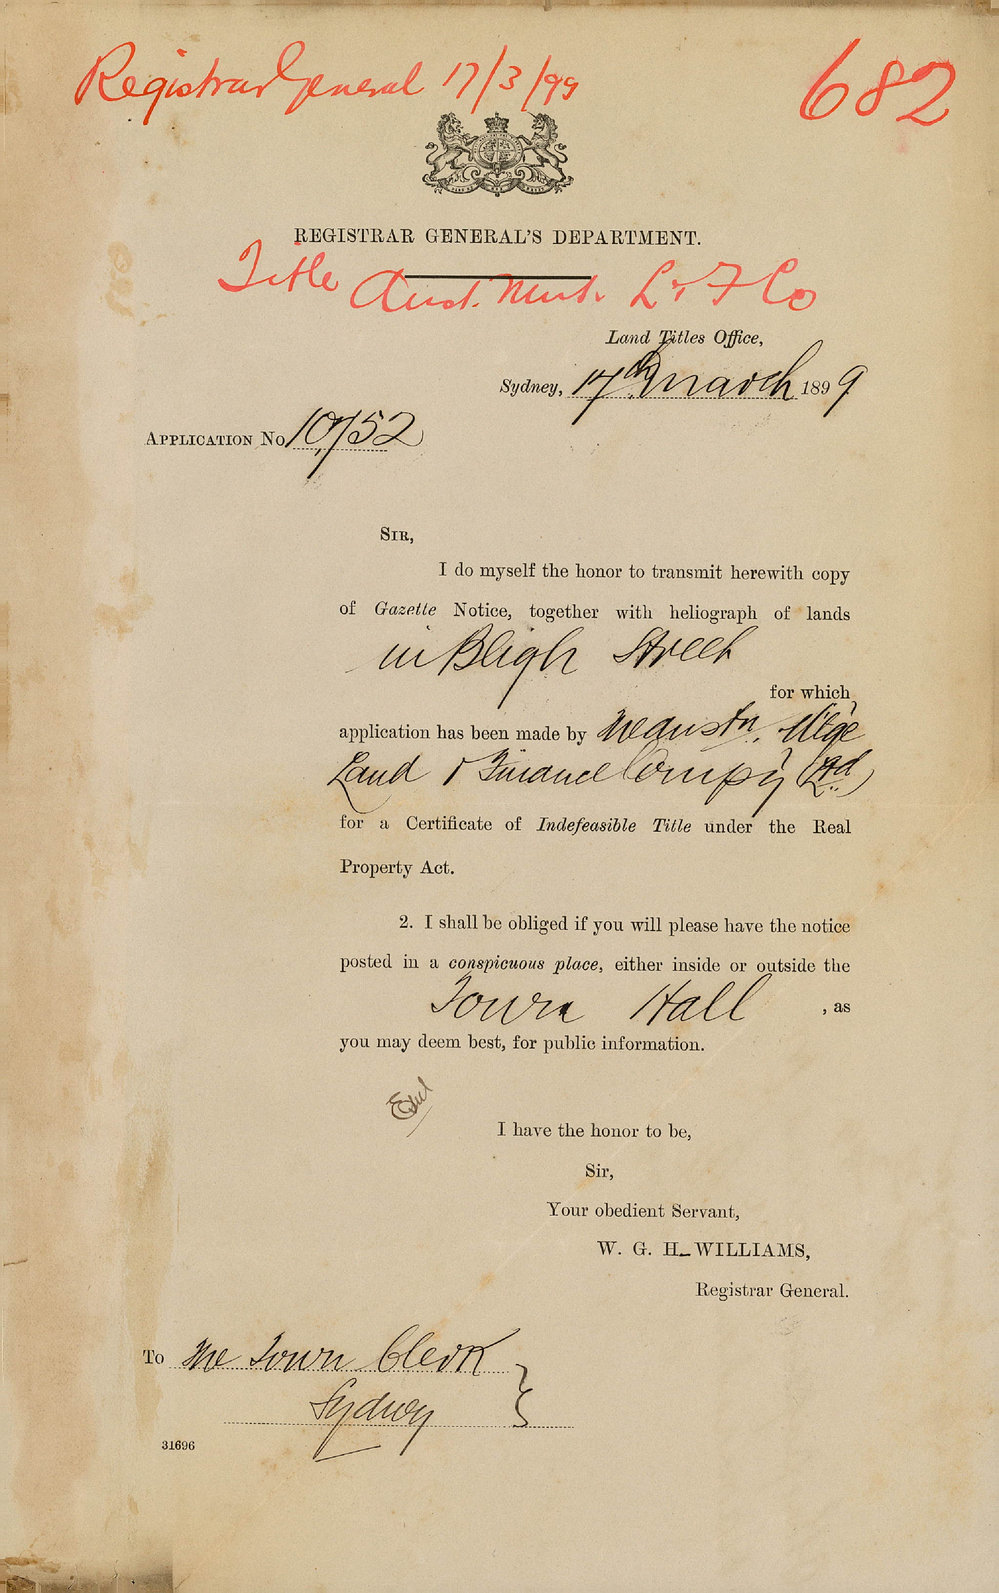 Registrar General 17/3/99
682
REGISTRAR GENERAL'S DEPARTMENT.
Title Aust. Mut. L. & F Co
Land Titles Office,
Sydney, 17th March 1899
APPLICATION No 10,752
SIR,
I do myself the honor to transmit herewith copy
of Gazette Notice, together with heliograph of lands
in Bligh Street
for which
application has been made by The Austn. Mtge
Land & Finance Compy (Ltd)
for a Certificate of Indefeasible Title under the Real
Property Act.
2. I shall be obliged if you will please have the notice
posted in a conspicuous place, either inside or outside the
Town Hall , as
you may deem best, for public information.
I have the honor to be,
Sir,
Your obedient Servant,
W. G. H. WILLIAMS,
Registrar General.
To The Town Clerk
Sydney
31696